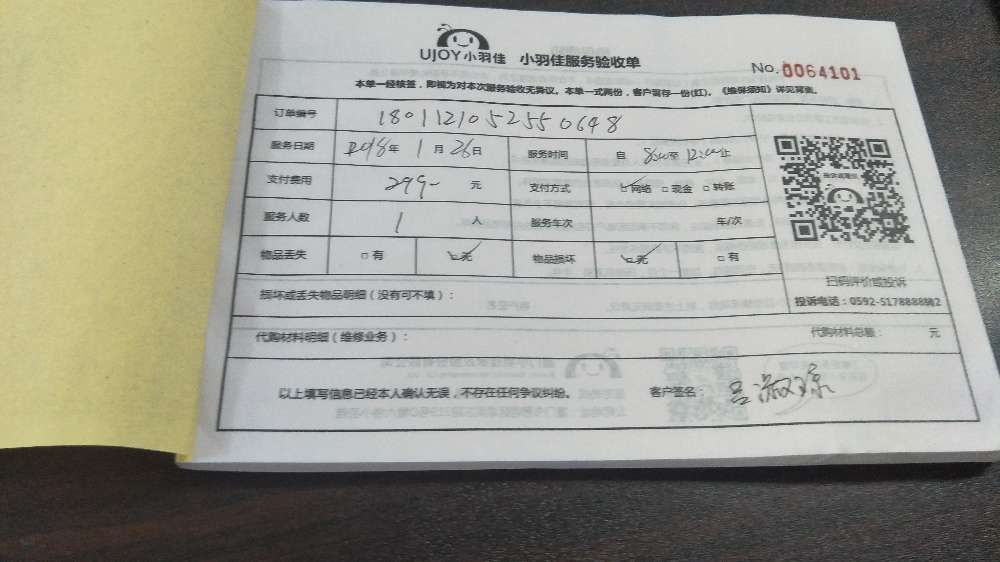 UJOY小羽佳 小羽佳服务验收单
No. 0064101
本单一经核签，即视为对本次服务验收无异议。本单一式两份，客户留存一份(红)。《维保须知》详见背面。
订单编号 1801121052550648
服务日期 2018年 1月 26日 服务时间 自 8:00至 12:00止
支付费用 299- 元 支付方式 网络 现金 转账
服务人数 1 人 服务车次 车/次
物品丢失 有 无 物品损坏 无 有
扫码评价或投诉
投诉电话：0592-5178888转2
损坏或丢失物品明细（没有可不填）：
代购材料明细（维修业务）： 代购材料总额： 元
以上填写信息已经本人确认无误，不存在任何争议纠纷。 客户签名： 吕淑琼